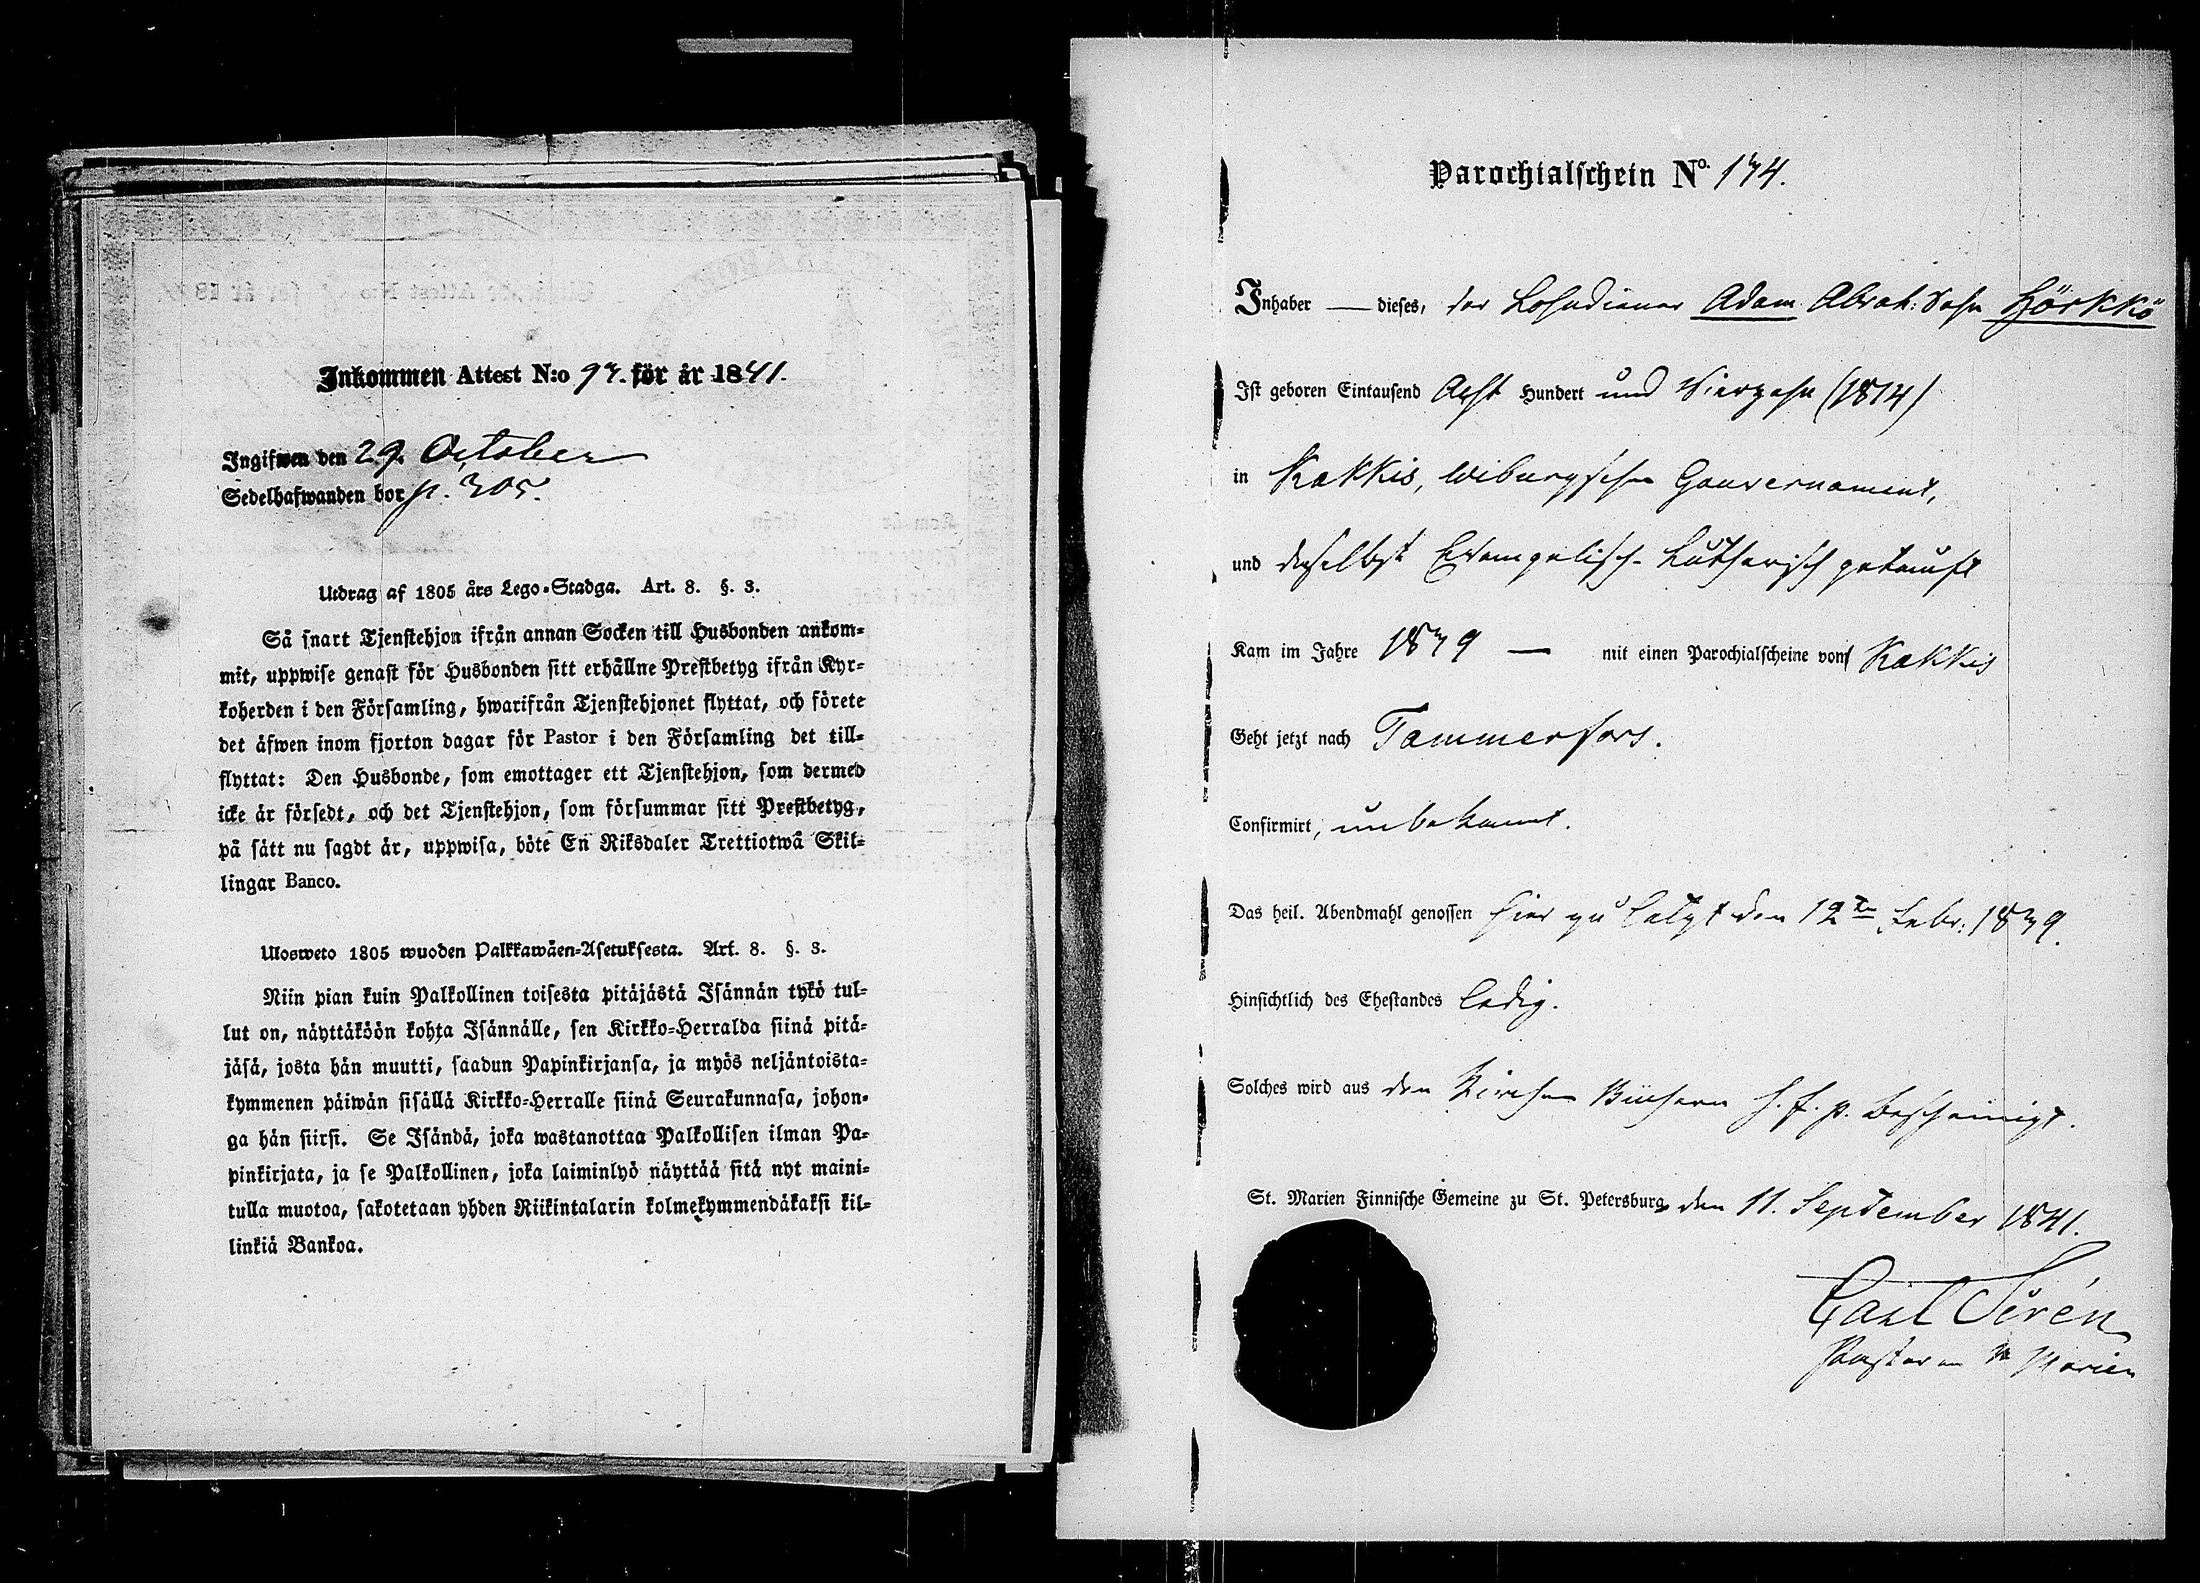 Inkommen Attest N:o 93. för år 1841.
Ingifwen den 29. October
Sedelhafwanden bor p. 305.
Utdrag af 1805 års Lego-Stadga. Art. 8. §. 3.
Så snart Tjenstehjon ifrån annan Socken till Husbonden ankom-
mit, uppwise genast för Husbonden sitt erhållne Prestbetyg ifrån Kyr-
koherden i den Församling, hwarifrån Tjenstehjonet flyttat, och förete
det äfwen inom fjorton dagar för Pastor i den Församling det till-
flyttat: Den Husbonde, som emottager ett Tjenstehjon, som dermed
icke är försedt, och det Tjenstehjon, som försummar sitt Prestbetyg,
på sätt nu sagdt är, uppwisa, böte En Riksdaler Trettiotwå Skil-
lingar Banco.
Ulosweto 1805 wuoden Palkkawäen-Asetuksesta. Art. 8. §. 3.
Niin pian kuin Palkollinen toisesta pitäjästä Isännän tykö tul-
lut on, näyttäköön kohta Isännälle, sen Kirkko-Herralda siinä pitä-
jäsä, josta hän muutti, saadun Papinkirjansa, ja myös neljäntoista-
kymmenen päiwän sisällä Kirkko-Herralle siinä Seurakunnasa, johon-
ga hän siirsi. Se Isändä, joka wastanottaa Palkollisen ilman Pa-
pinkirjata, ja se Palkollinen, joka laiminlyö näyttää sitä nyt maini-
tulla muotoa, sakotetaan yhden Riikintalarin kolmekymmendäkaksi kil-
linkiä Bankoa.
Parochialschein No. 134.
Inhaber — dieses, der Lohndiener Adam Abrah: Sohn Hörkkö
Ist geboren Eintausend Acht Hundert und Vierzehn (1814)
in Kakkis, Wiburgschen Gouvernement,
und daselbst Evangelisch-Lutherisch getauft
Kam im Jahre 1839 — mit einen Parochialscheine von Kakkis
Geht jetzt nach Tammerfors.
Confirmirt, unbekannt.
Das heil. Abendmahl genossen hier zu letzt den 12ten Febr: 1839.
Hinsichtlich des Ehestandes ledig.
Solches wird aus den Kirchen Büchern h. f. p. bescheinigt.
St. Marien Finnische Gemeine zu St. Petersburg, den 11. September 1841.
Carl Sirén
Pastor an St Marien